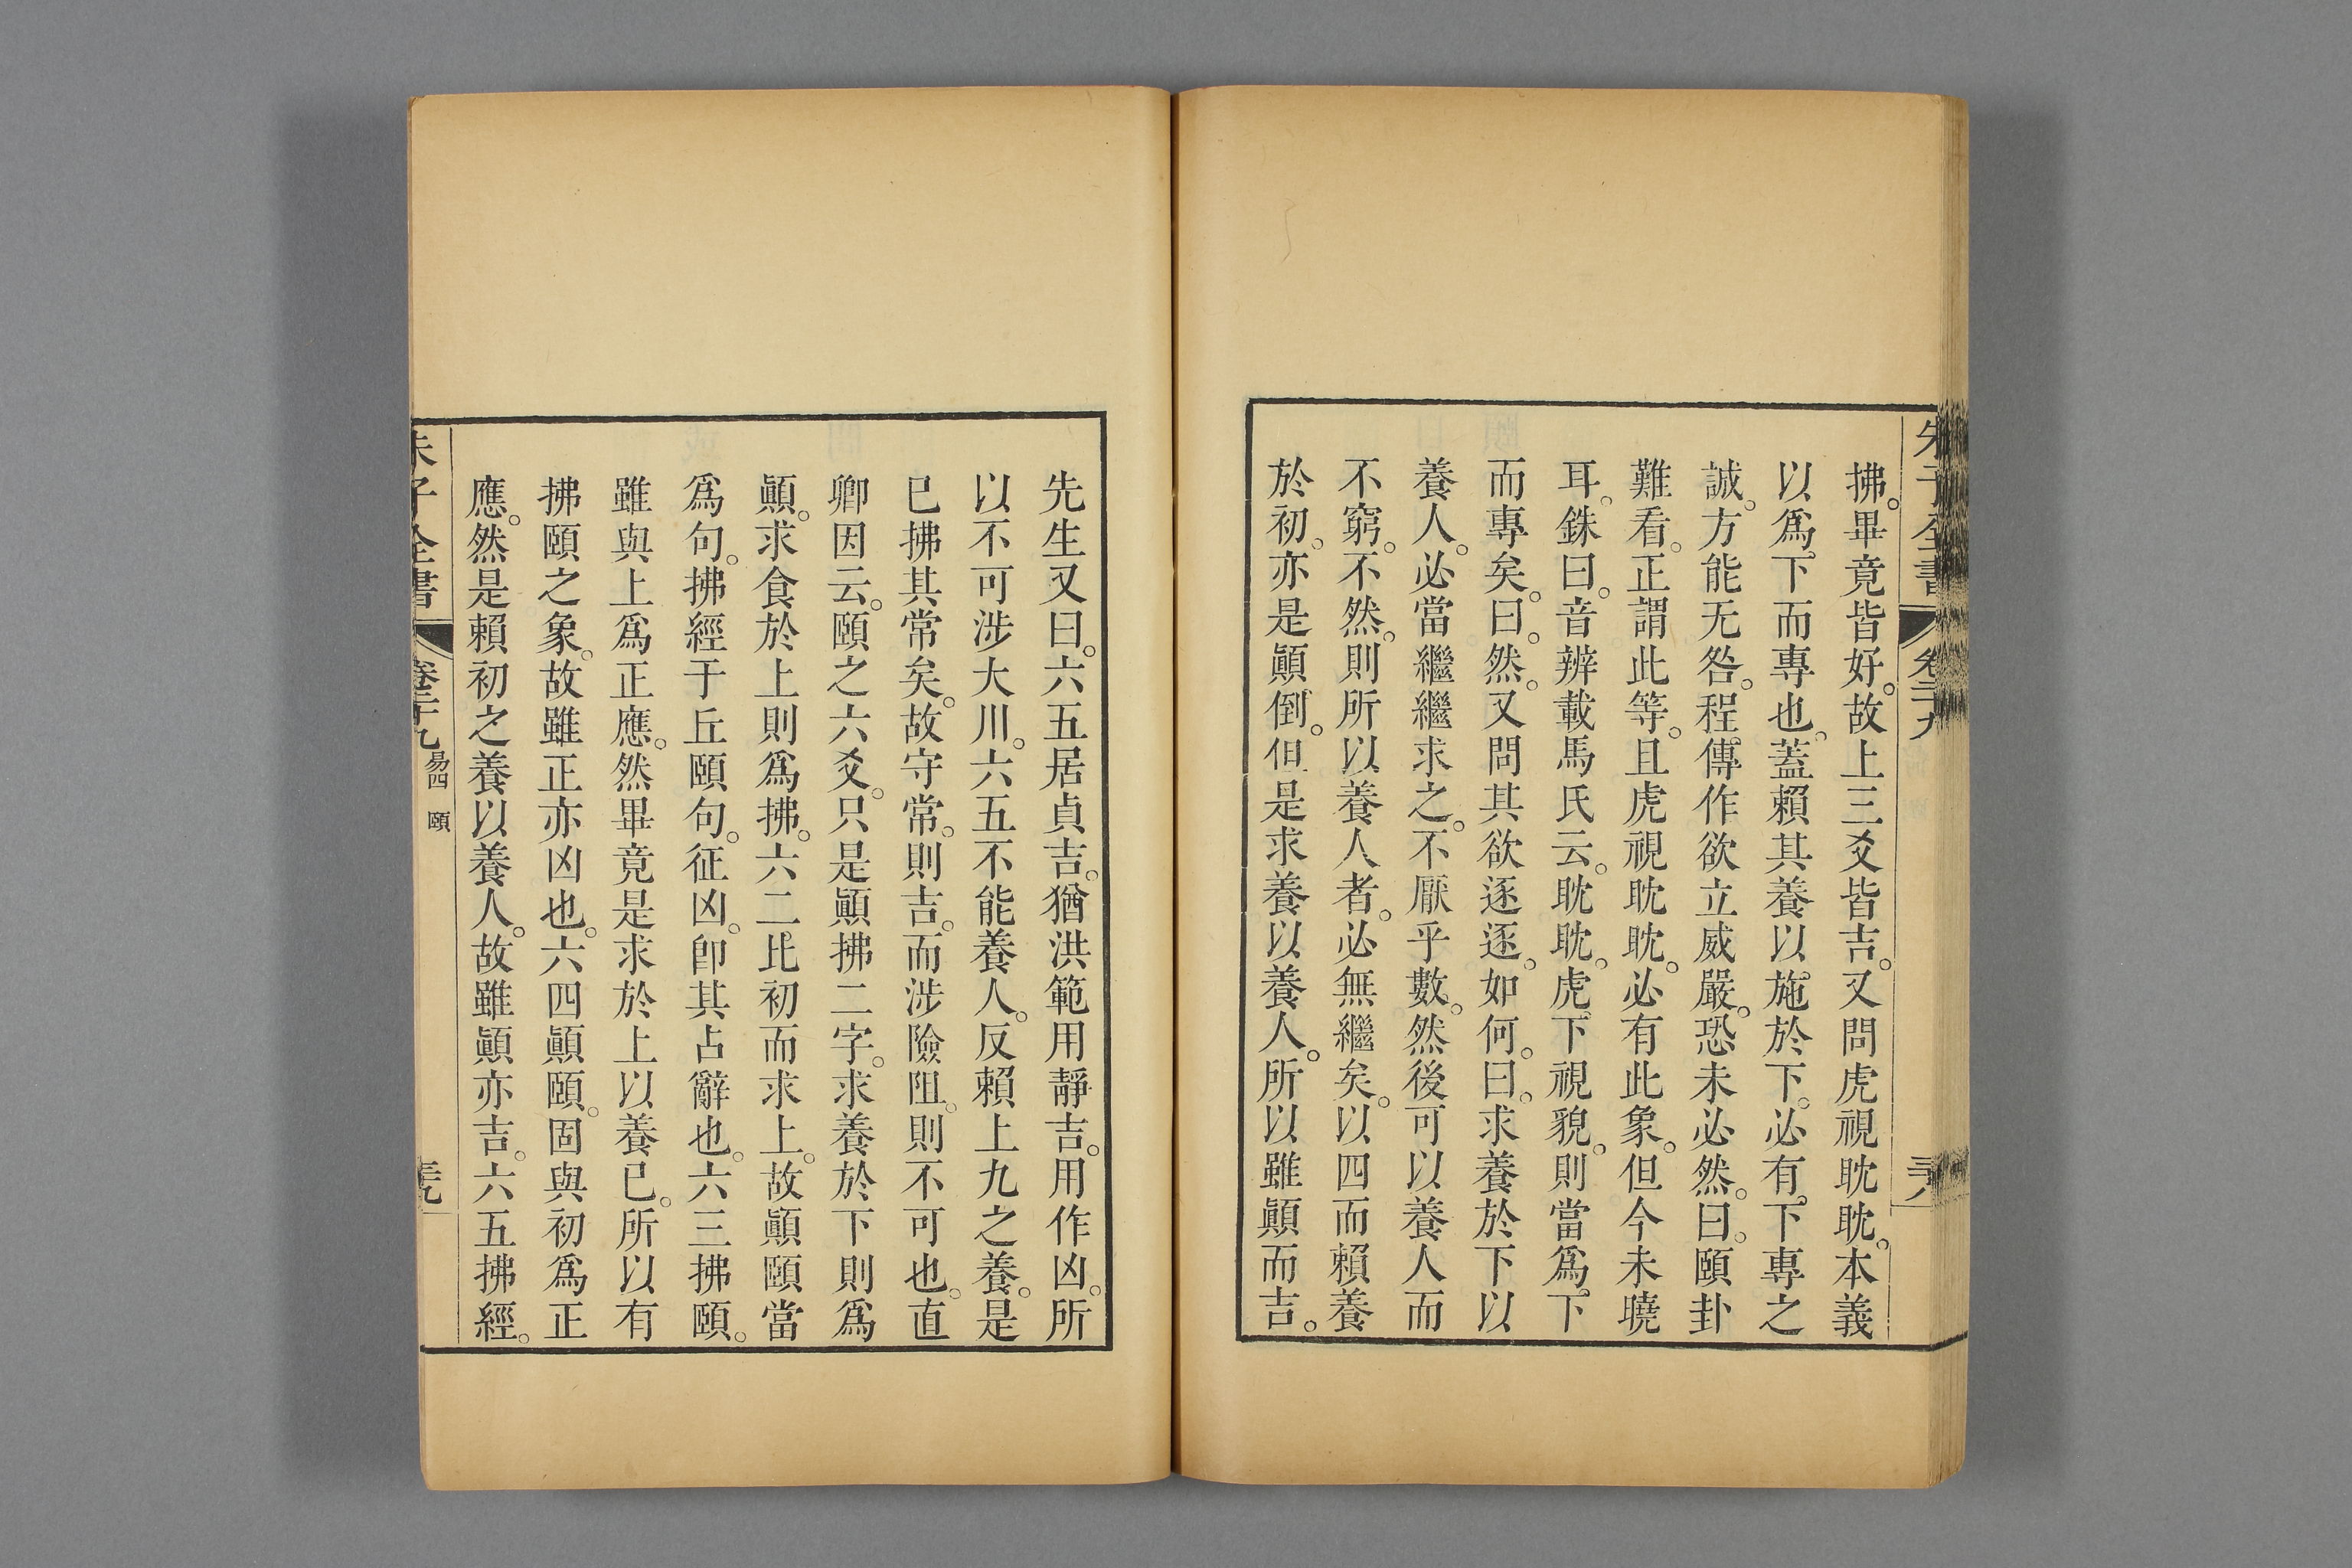 朱子全書 卷二十九 三十八
拂。畢竟皆好。故上三爻皆吉。又問虎視眈眈。本義
以爲下而專也。蓋賴其養以施於下。必有下專之
誠。方能无咎。程傳作欲立威嚴。恐未必然。曰。頤卦
難看。正謂此等。且虎視眈眈。必有此象。但今未曉
耳。銖曰。音辨載馬氏云。眈眈。虎下視貌。則當爲下
而專矣。曰。然。又問其欲逐逐。如何。曰。求養於下以
養人。必當繼繼求之。不厭乎數。然後可以養人而
不窮。不然。則所以養人者。必無繼矣。以四而賴養
於初。亦是顚倒。但是求養以養人。所以雖顚而吉。
先生又曰。六五居貞吉。猶洪範用靜吉。用作凶。所
以不可涉大川。六五不能養人。反賴上九之養。是
已拂其常矣。故守常。則吉。而涉險阻。則不可也。直
卿因云。頤之六爻。只是顚拂二字。求養於下則爲
顚。求食於上則爲拂。六二比初而求上。故顚頤當
爲句。拂經于丘頤句。征凶。卽其占辭也。六三拂頤。
雖與上爲正應。然畢竟是求於上以養已。所以有
拂頤之象。故雖正亦凶也。六四顚頤。固與初爲正
應。然是賴初之養以養人。故雖顚亦吉。六五拂經。
朱子全書 卷二十九 易四 頤 三十九